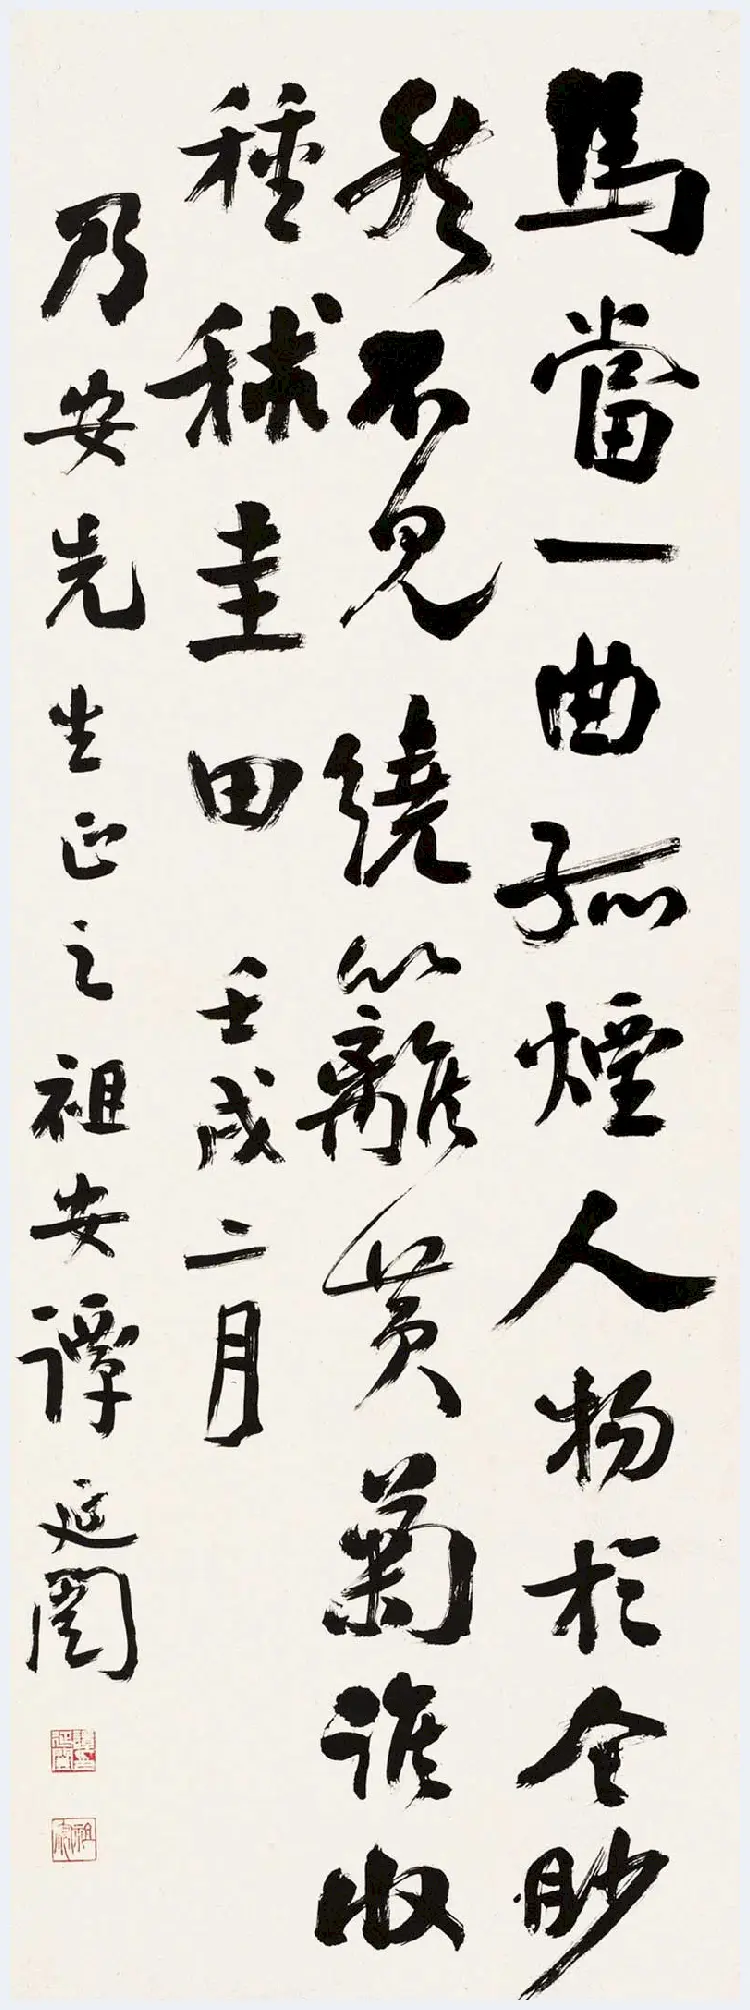 馬當一曲孤煙人物於今眇
然不見繞籬黃菊誰收
種秫圭田 壬戌二月
乃安先生正之祖安譚延闓